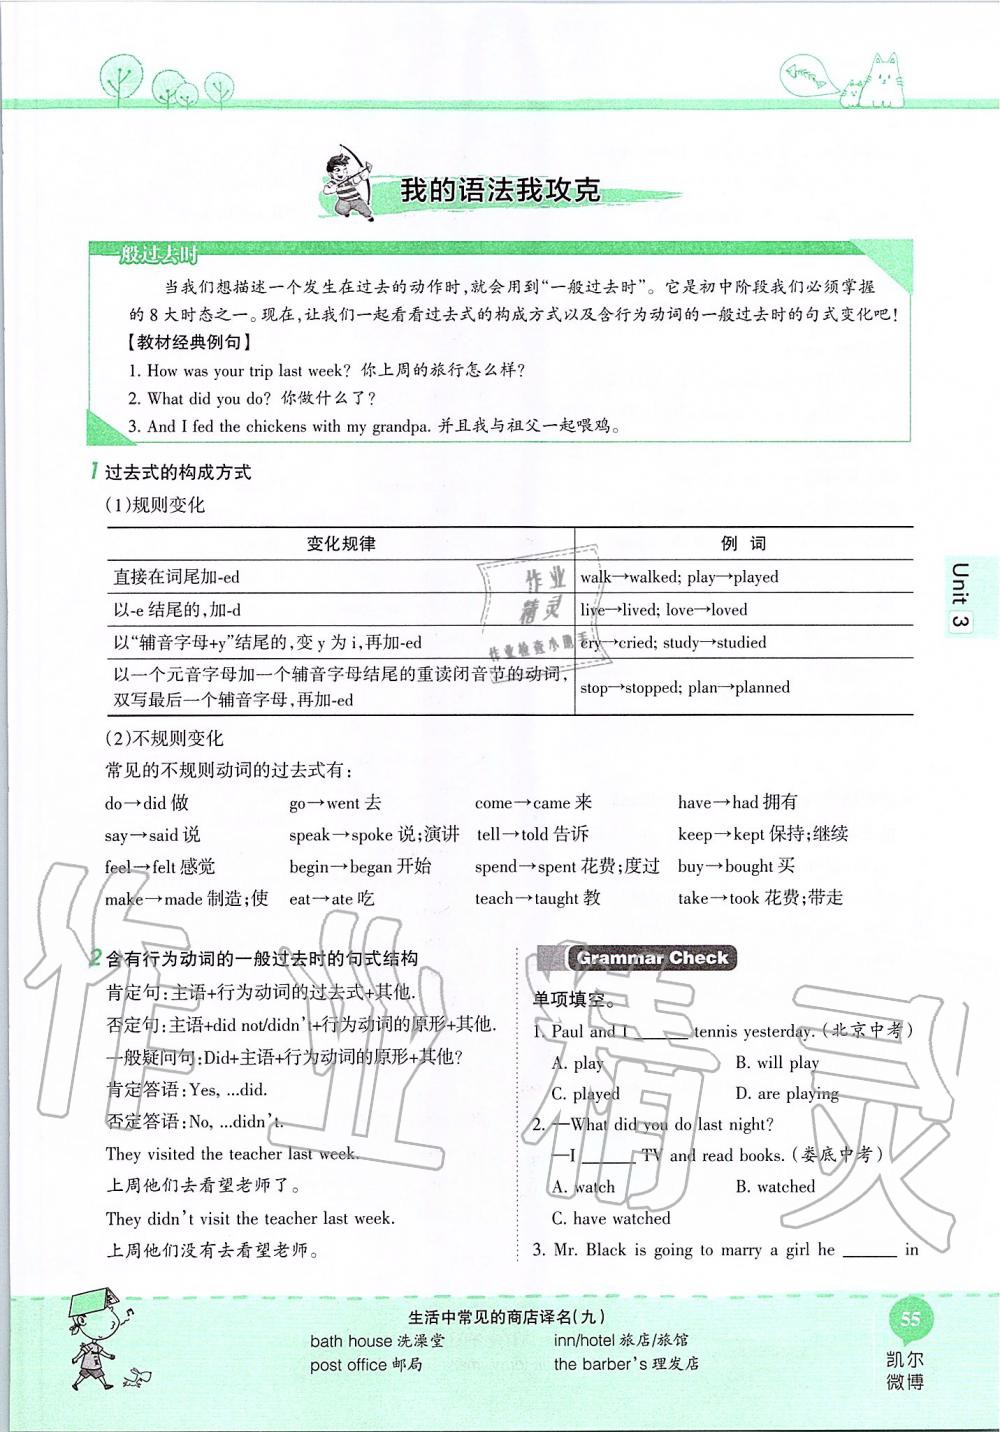 我的语法我攻克
一般过去时
当我们想描述一个发生在过去的动作时,就会用到“一般过去时”。它是初中阶段我们必须掌握
的8大时态之一。现在,让我们一起看看过去式的构成方式以及含行为动词的一般过去时的句式变化吧!
【教材经典例句】
1. How was your trip last week? 你上周的旅行怎么样?
2. What did you do? 你做什么了?
3. And I fed the chickens with my grandpa. 并且我与祖父一起喂鸡。
1 过去式的构成方式
(1)规则变化
变化规律 例 词
直接在词尾加-ed walk→walked; play→played
以-e结尾的,加-d live→lived; love→loved
以“辅音字母+y”结尾的,变y为i,再加-ed cry→cried; study→studied
以一个元音字母加一个辅音字母结尾的重读闭音节的动词,
双写最后一个辅音字母,再加-ed stop→stopped; plan→planned
作业
精灵
作业检查小助手
Unit 3
(2)不规则变化
常见的不规则动词的过去式有:
do→did 做 go→went 去 come→came 来 have→had 拥有
say→said 说 speak→spoke 说;演讲 tell→told 告诉 keep→kept 保持;继续
feel→felt 感觉 begin→began 开始 spend→spent 花费;度过 buy→bought 买
make→made 制造;使 eat→ate 吃 teach→taught 教 take→took 花费;带走
2 含有行为动词的一般过去时的句式结构
肯定句:主语+行为动词的过去式+其他.
否定句:主语+did not/didn't+行为动词的原形+其他.
一般疑问句:Did+主语+行为动词的原形+其他?
肯定答语:Yes, ...did.
否定答语:No, ...didn't.
They visited the teacher last week.
上周他们去看望老师了。
They didn't visit the teacher last week.
上周他们没有去看望老师。
Grammar Check
单项填空。
1. Paul and I ______ tennis yesterday. (北京中考)
A. play B. will play
C. played D. are playing
2. —What did you do last night?
—I ______ TV and read books. (娄底中考)
A. watch B. watched
C. have watched
3. Mr. Black is going to marry a girl he ______ in
作业精灵
生活中常见的商店译名(九)
bath house 洗澡堂 inn/hotel 旅店/旅馆
post office 邮局 the barber's 理发店
55
凯尔
微博